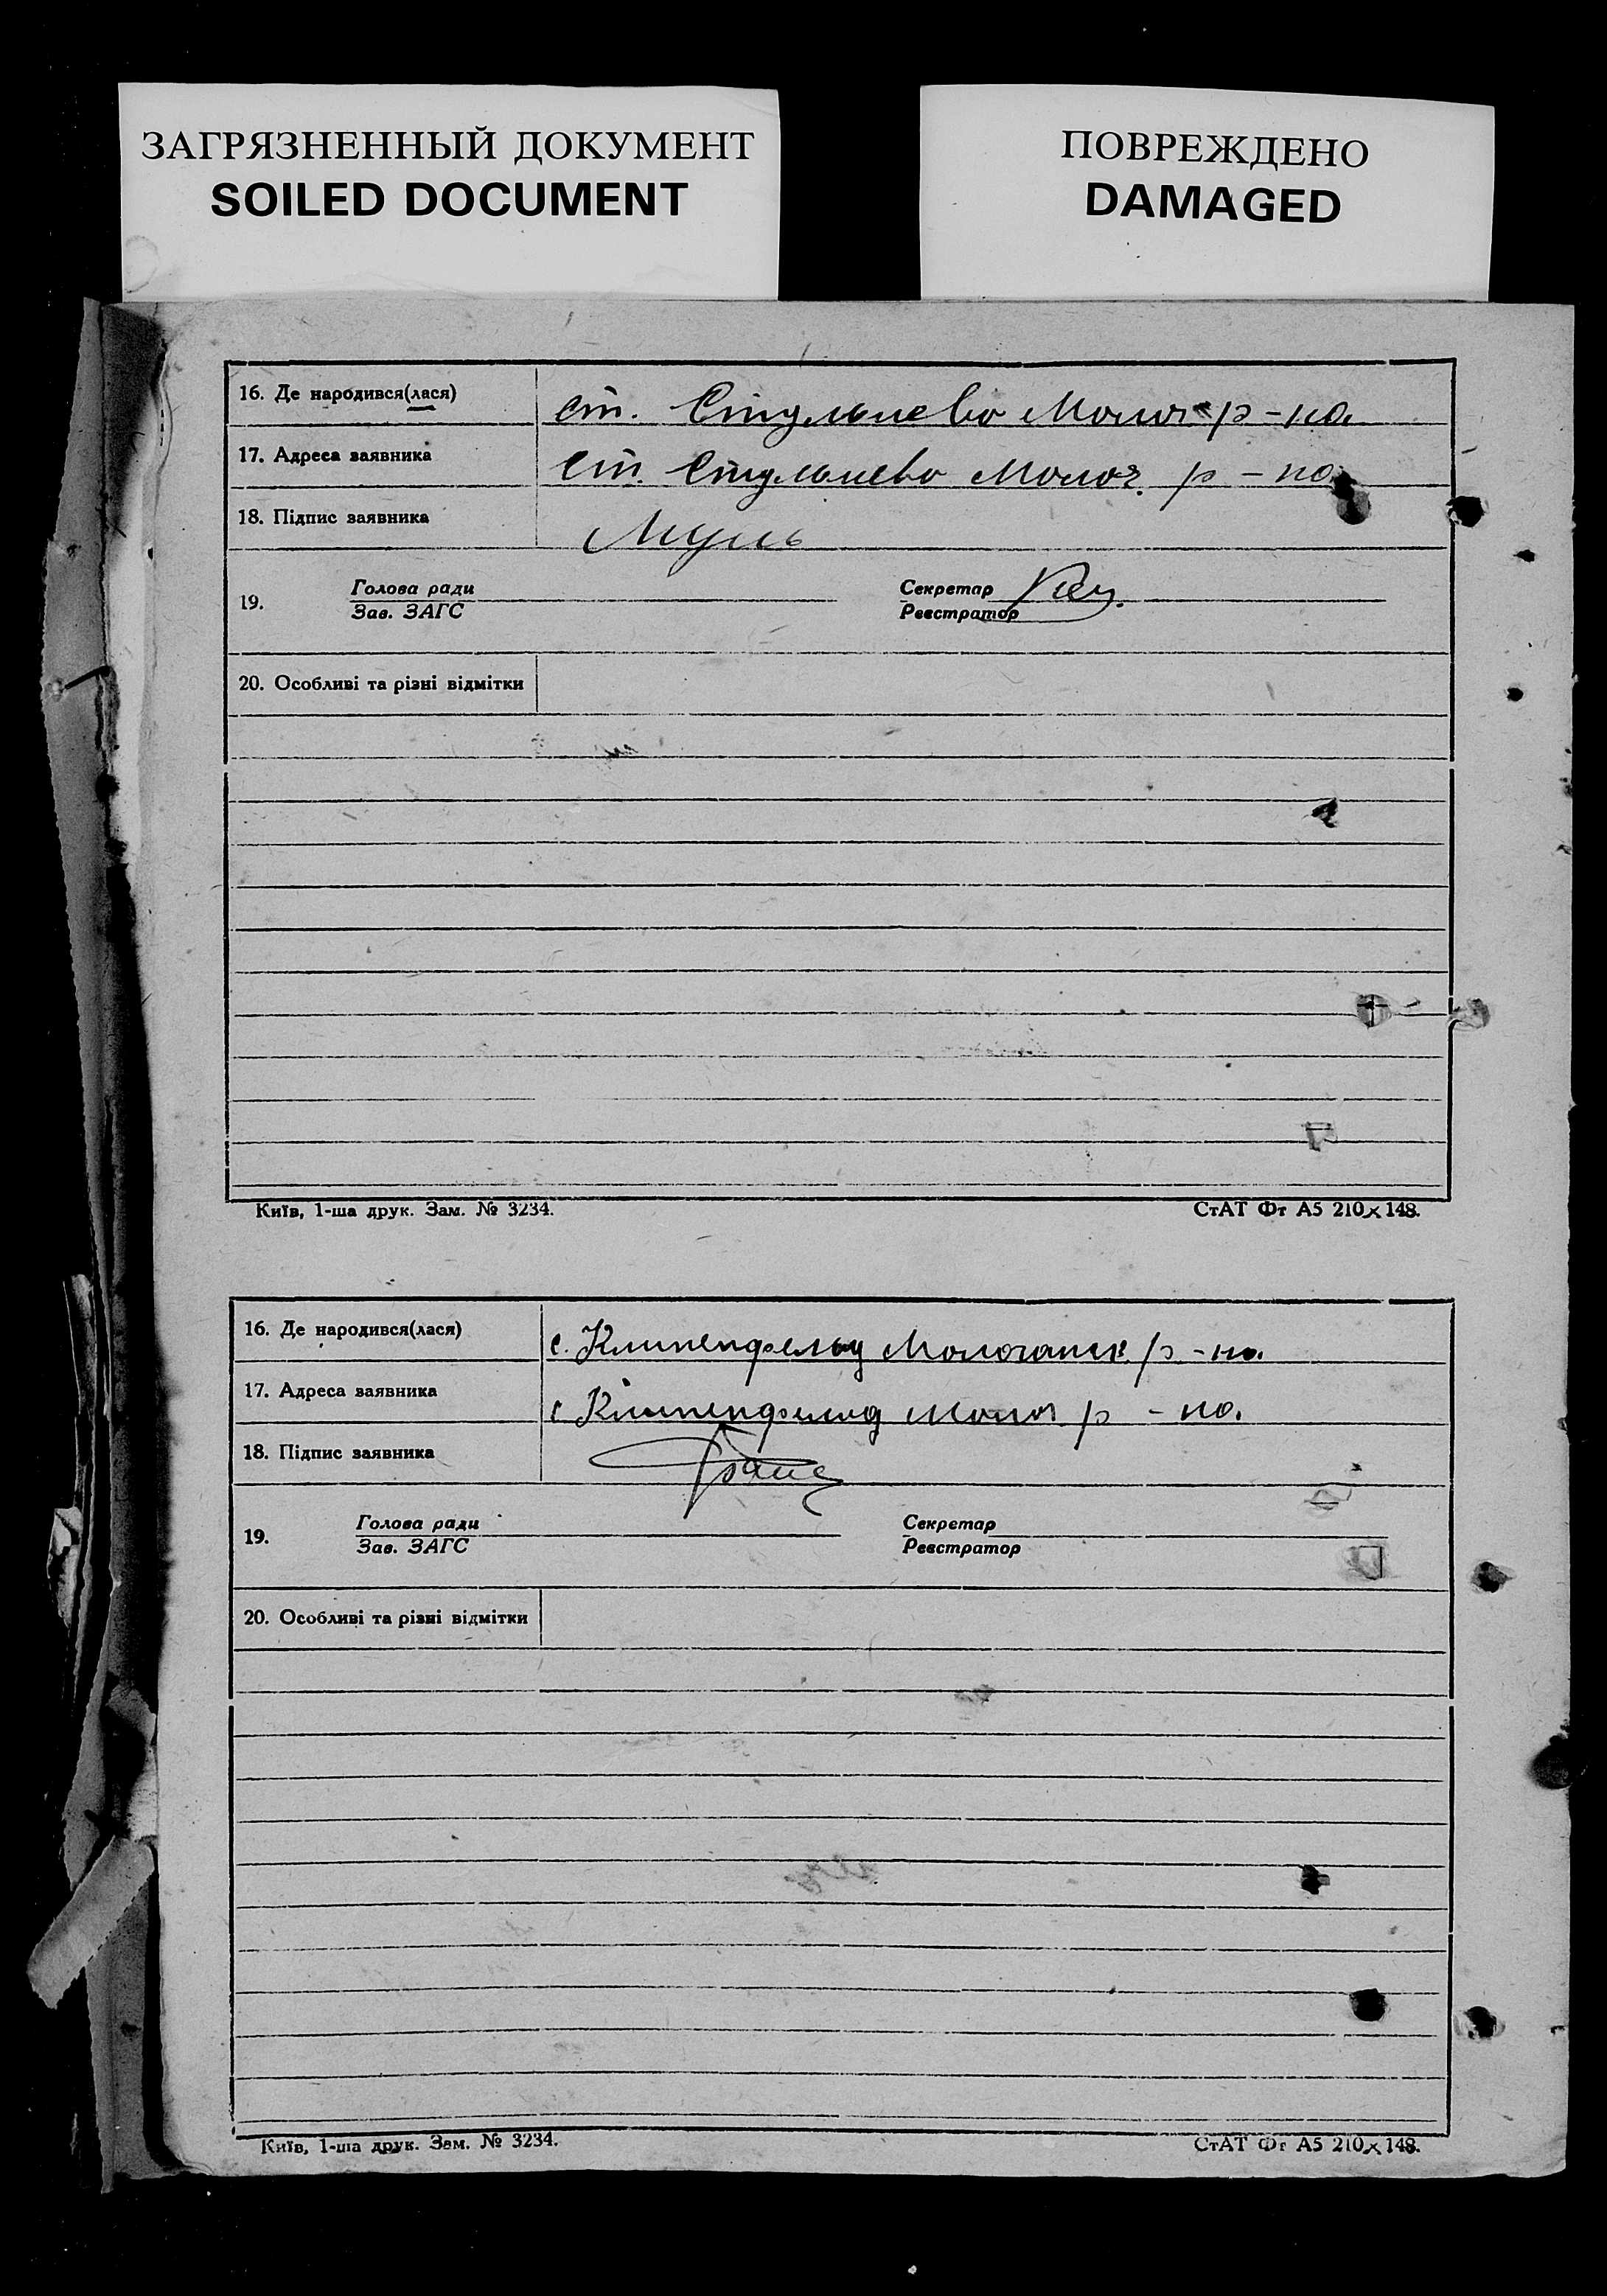 ЗАГРЯЗНЕННЫЙ ДОКУМЕНТ
SOILED DOCUMENT
ПОВРЕЖДЕНО
DAMAGED
16. Де народився(лася) ст. Стульнево Молоч р-на
17. Адреса заявника ст. Стульнево Молоч. р-на
18. Підпис заявника
19. Голова ради Секретар
Зав. ЗАГС Реєстратор
20. Особливі та різні відмітки
Київ, 1-ша друк. Зам. № 3234. СтАТ Фт А5 210×148.
16. Де народився(лася) с. Клипенфельд Молочанск. р-на
17. Адреса заявника с Клипенфельд Молоч. р-на.
18. Підпис заявника
19. Голова ради Секретар
Зав. ЗАГС Реєстратор
20. Особливі та різні відмітки
Київ, 1-ша друк. Зам. № 3234. СтАТ Фт А5 210×148.